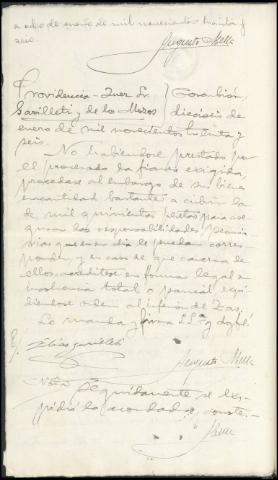 a ocho de enero de mil novecientos treinta y
seis.
Augusto
Providencia - Juez Sr.
Garolleti y de los Mozos
Gorabión,
dieciseis de
enero de mil novecientos treinta y
seis.
No habiendose prestado por
el procesado la fianza exigida,
procedase al embargo de sus bienes
en cantidad bastante a cubrir la
de mil quinientas pesetas para ase-
gurar las responsabilidades pecunia-
rias que en su dia le puedan corres-
ponder, y en caso de que carezca de
ellos, acreditese en forma legal su
insolvencia total o parcial
al inferior de
Lo manda y firma S.S. doy fe
E/
Elias
Augusto
Nota Seguidamente se ex-
pidió lo acordado,